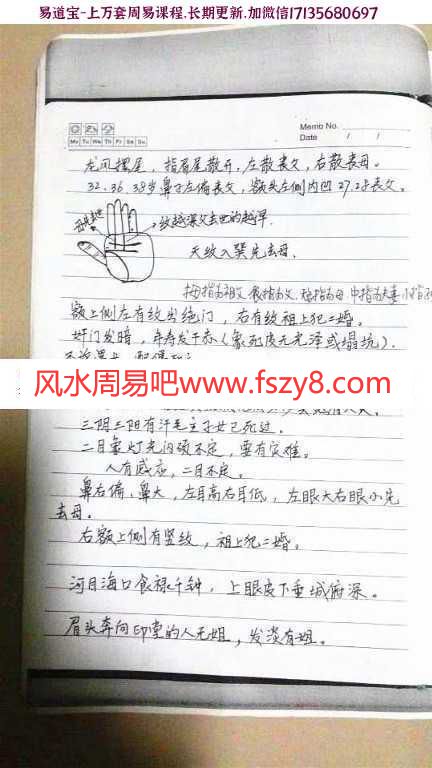 易道宝-上万套周易课程.长期更新.加微信17135680697
Memo No.
Mo Tu We Th Fr Sa Su
Date / /
龙凤摆尾，指眉尾散开，左散丧父，右散丧母。
32.36.38岁鼻子左偏丧父，额头左侧内凹27.28丧父。
纹越深父去世的越早
天纹入巽先去母.
拇指为祖父 食指为父
中指为夫妻 小指
额上侧左有纹出绝门，右有纹祖上犯二婚。
奸门发暗，年寿发干赤（象死皮无光泽或塌坑）.
风水周易吧www.fszy8.com
三阴三阳有汗毛主子女已死过。
二目象灯光闪烁不定，要有灾难。
人有感应，二目不定。
鼻右偏、鼻大，左耳高右耳低，左眼大右眼小先
去母。
右额上侧有竖纹，祖上犯二婚。
河目海口食禄千钟，上眼皮下垂城府深。
眉头奔向印堂的人无姐，发淡有姐。